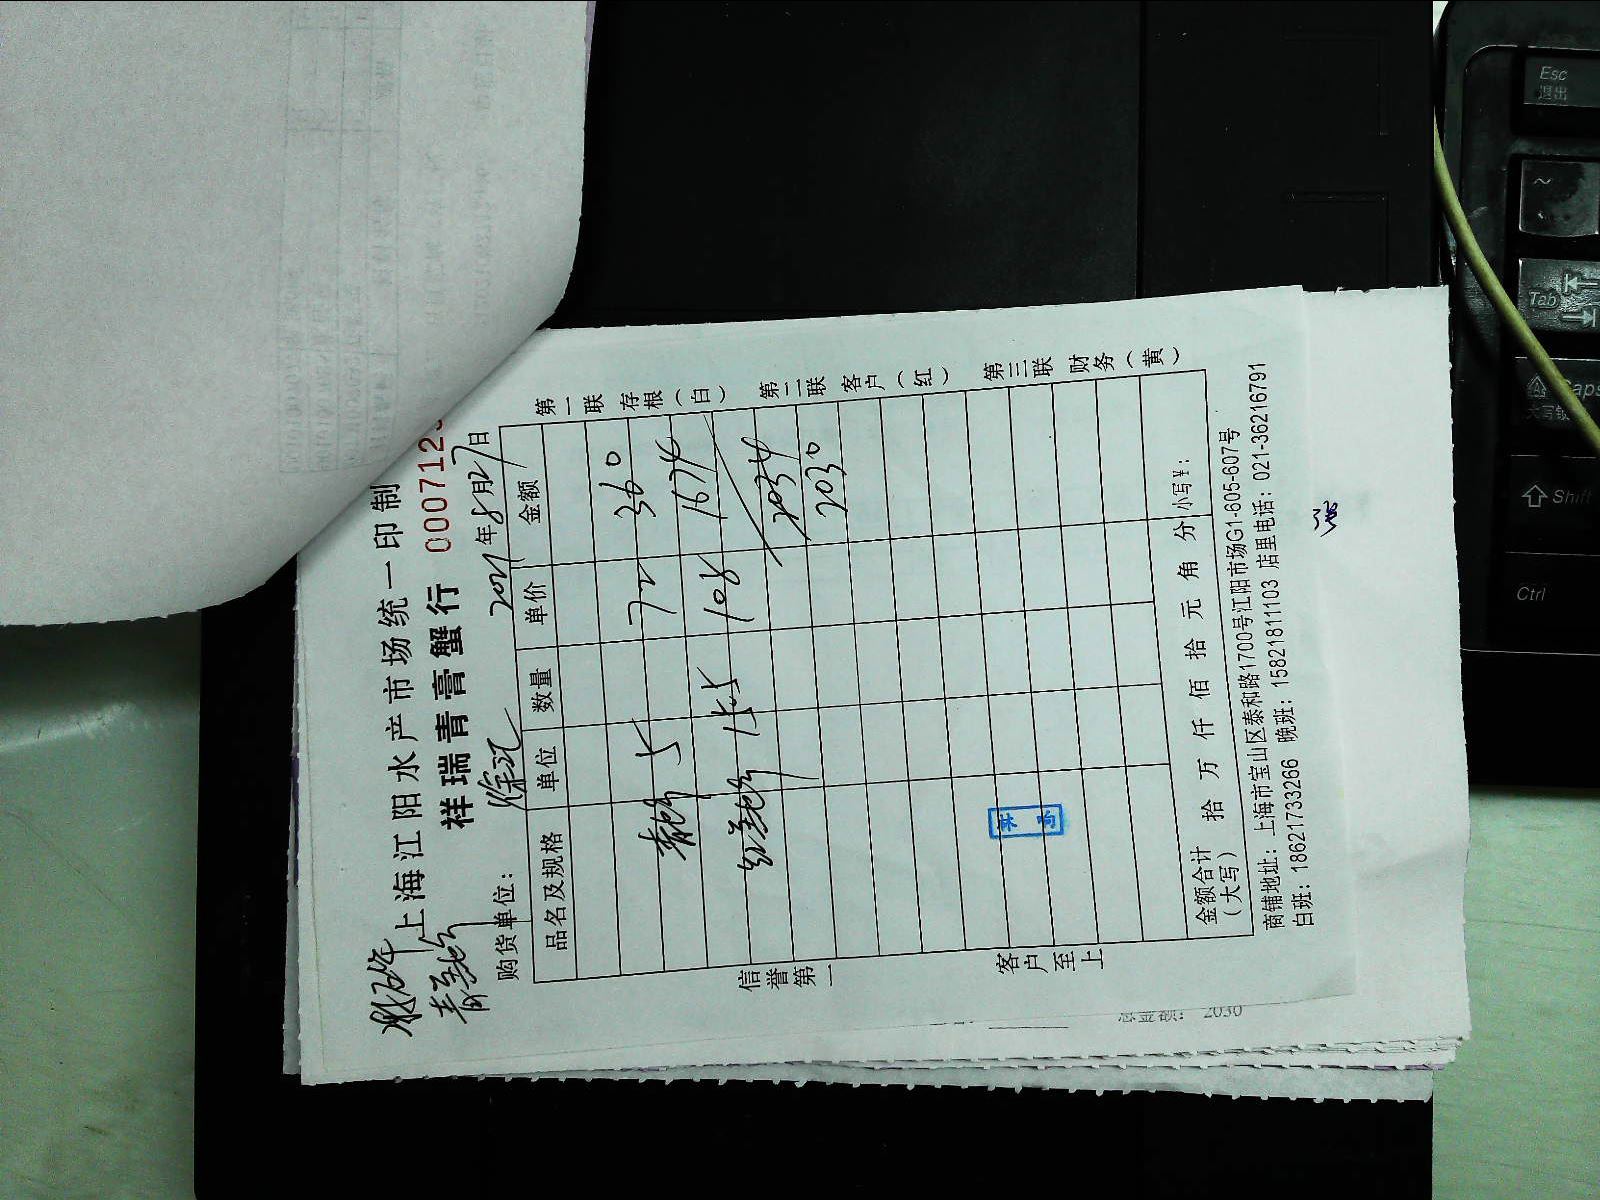 上海江阳水产市场统一印制
祥瑞青膏蟹行 000712
购货单位： 徐汇 2021年8月27日
品名及规格 单位 数量 单价 金额
5 72 360
15.5 108 1674
2034
2030
金额合计（大写） 拾 万 仟 佰 拾 元 角 分 小写¥：
商铺地址：上海市宝山区泰和路1700号江阳市场G1-605-607号
白班：18621733266 晚班：15821811103 店里电话：021-36216791
第一联 存根（白）
第二联 客户（红）
第三联 财务（黄）
信誉第一
客户至上
总金额： 2030
Esc
退出
~
Tab
Caps
大写锁
Shift
Ctrl